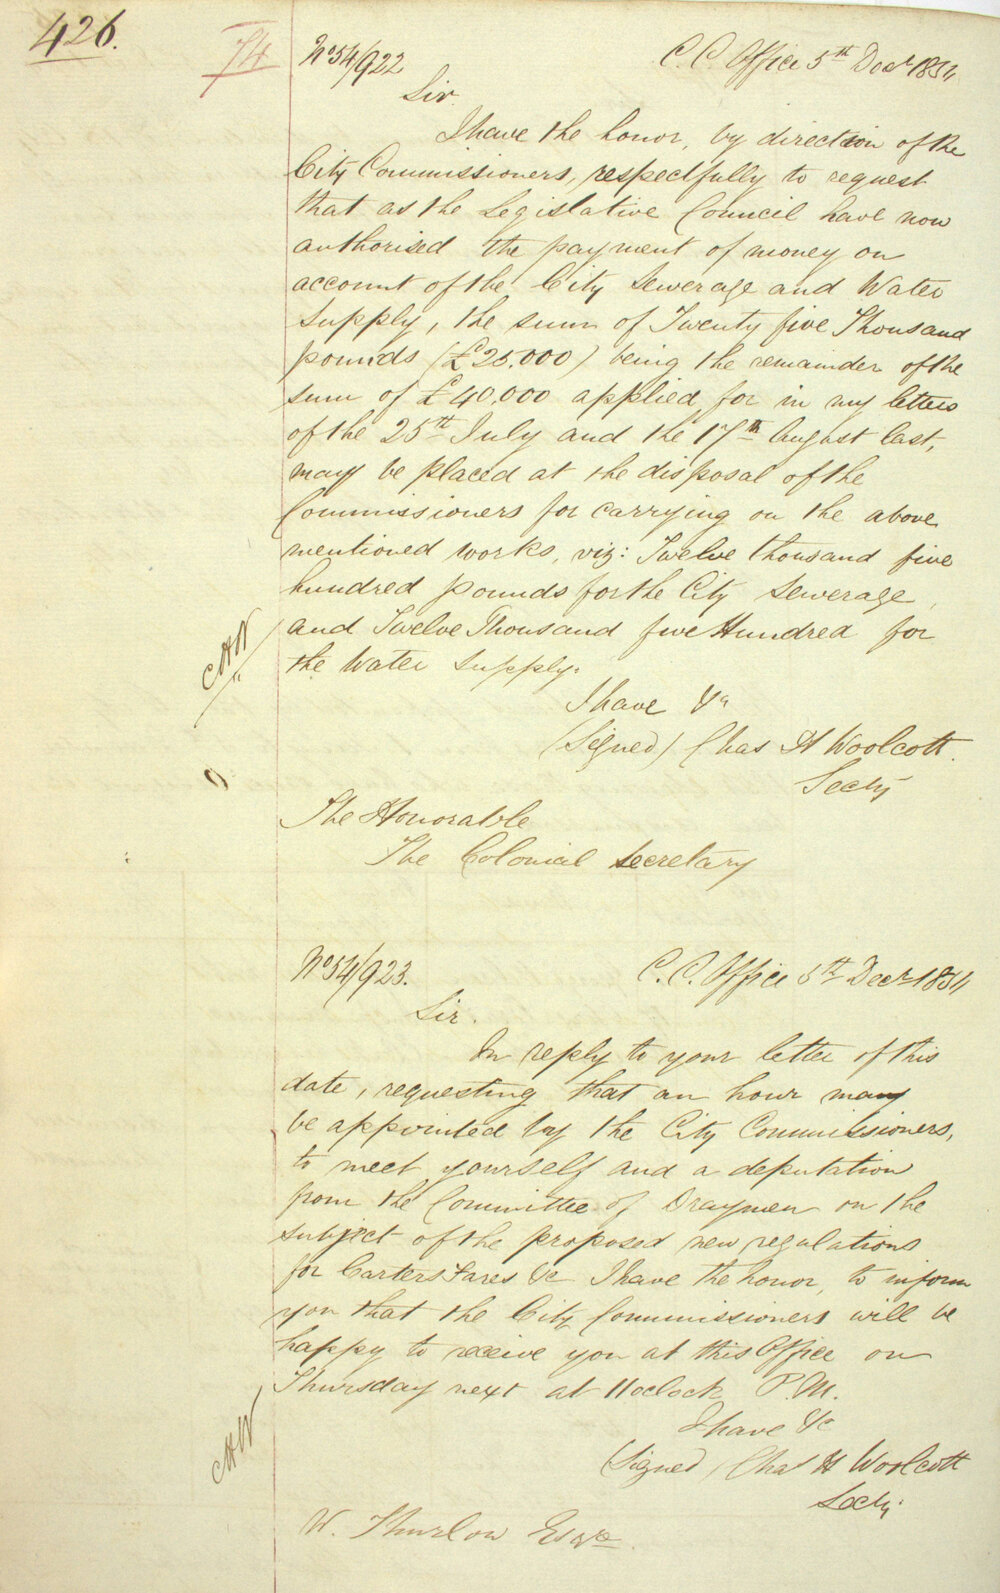 426.
74
No 54/922
C. C. Office 5th Decr 1854
Sir.
I have the honor, by direction of the
City Commissioners, respectfully to request
that as the Legislative Council have now
authorised the payment of money on
account of the City Sewerage and Water
Supply, the sum of Twenty five Thousand
pounds (£25.000) being the remainder of the
sum of £40,000 applied for in my letters
of the 25th July and the 17th August last,
may be placed at the disposal of the
Commissioners for carrying on the above
mentioned works, viz: Twelve thousand five
hundred pounds for the City Sewerage,
and Twelve Thousand five Hundred for
the Water Supply.
CHW
I have &c
(Signed) Chas H Woolcott.
Secty
The Honorable
The Colonial Secretary
No 54/923.
C. C. Office 5th Decr 1854
Sir.
In reply to your letter of this
date, requesting that an hour may
be appointed by the City Commissioners,
to meet yourself and a deputation
from the Committee of Draymen on the
subject of the proposed new regulations
for Carters Fares &c I have the honor, to inform
you that the City Commissioners will be
happy to receive you at this Office on
Thursday next at 1 oclock P.M.
I have &c
CHW
(Signed) Chas H Woolcott
Secty.
W. Thurlow Esqre